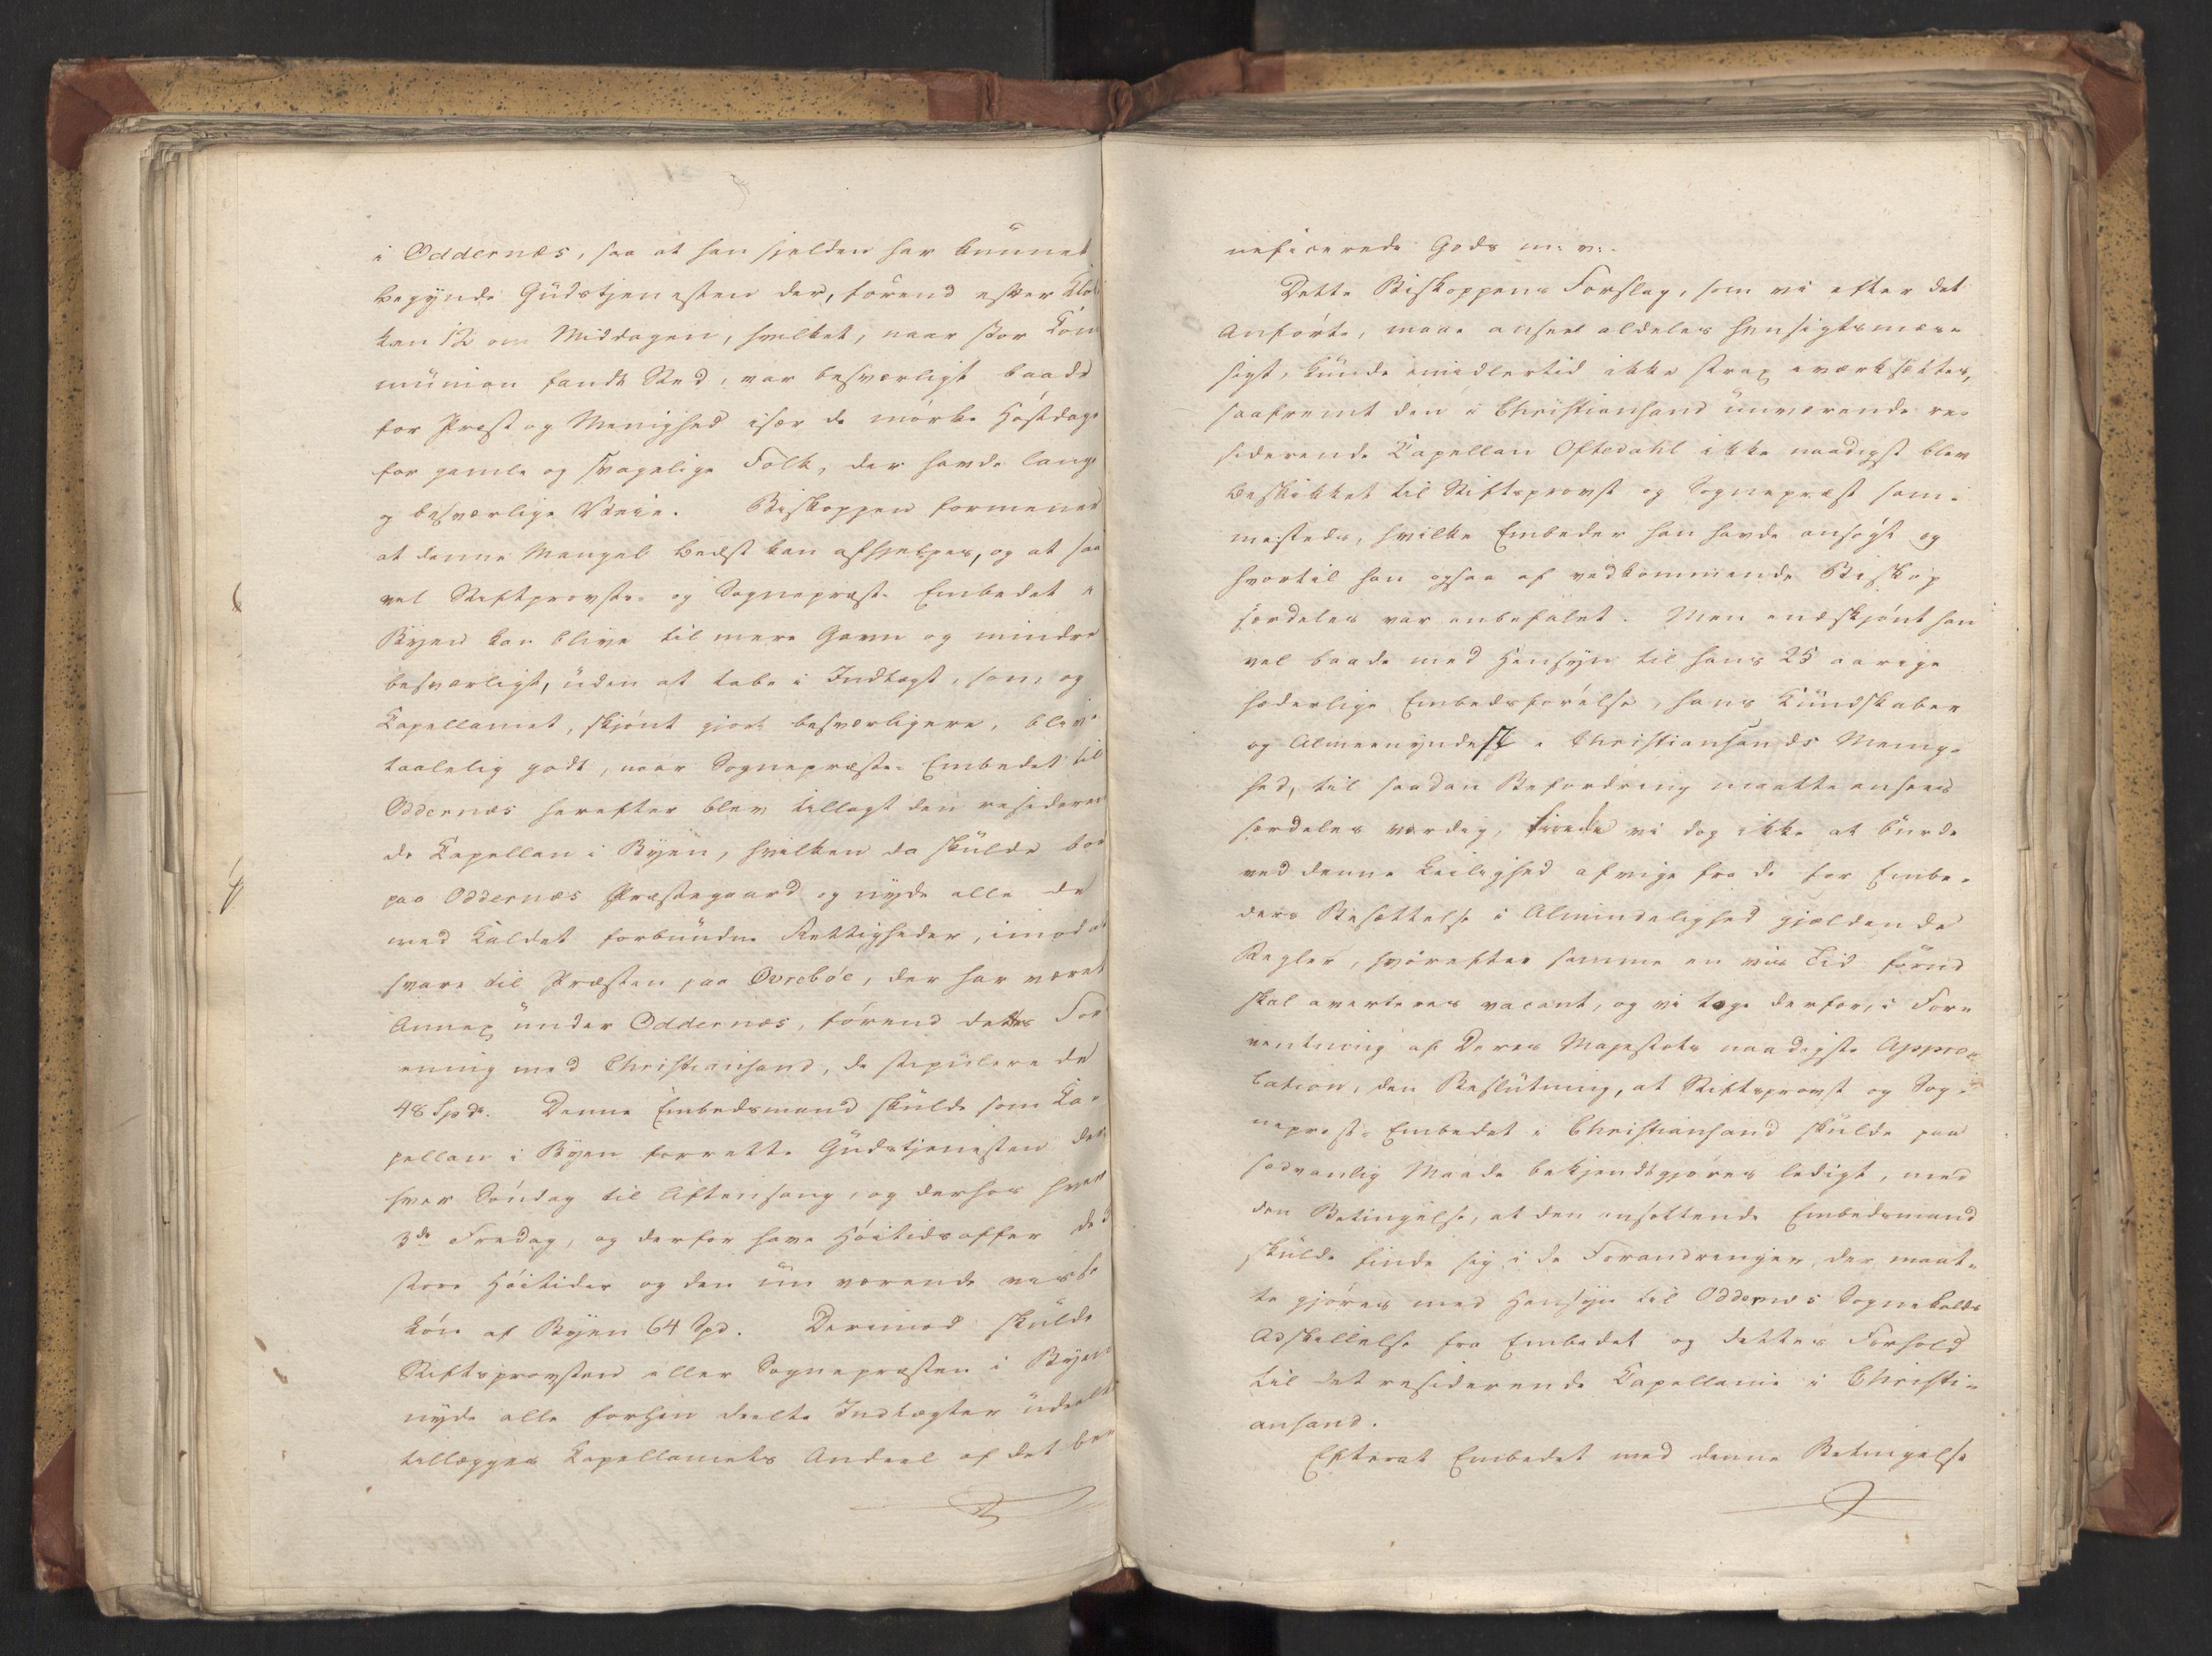 i Oddernæs, saa at han sjelden har kunnet
begynde Gudstjenesten der, förend efter Klok
ken 12 om Middagen, hvilket, naar stor Com
munion fandt Sted, var besværligt baade
for Præst og Menighed især de mörke Höstdage
for gamle og svagelige Folk, der havde lange
og besværlige Veie. Biskoppen formener
at denne Mangel bedst kan afhjelpes, og at saa
vel Stiftprovste- og Sognepræste-Embedet i
Byen kan blive til mere Gavn og mindre
besværligt, uden at tabe i Indtægt, som og
Capellaniet, skjönt gjort besværligere, blive
taalelig godt, naar Sognepræste-Embedet til
Oddernæs herefter blev tillagt den resideren
de Capellan i Byen, hvilken da skulde boe
paa Oddernæs Præstegaard og nyde alle de
med Kaldet forbundne Rettigheder, imod at
svare til Præsten paa Övreböe, der har været
Annex under Oddernæs, förend dettes For
ening med Christiansand, de stipulerede
48 Spd. Denne Embedsmand skulde som Ca-
pellan i Byen forrette Gudstjenesten der
hver Söndag til Aftensang, og derhos hver
3de Fredag, og derfor have Höitidsoffer de 3
store Höitider og den nu værende visse
Lön af Byen 64 Spd. Derimod skulde
Stiftsprovsten eller Sognepræsten i Byen
nyde alle forhen deelte Indtægter udeelt
tillægges Capellaniets Andeel af det be-
neficerede Gods m: v:.
Dette Biskoppens Forslag, som vi efter det
Anförte, maae ansee aldeles hensigtsmæs-
sigt, kunde imidlertid ikke strax iværksættes,
saafremt den i Christiansand nuværende re-
siderende Capellan Oftedahl ikke naadigst blev
beskikket til Stiftsprovst og Sognepræst sam-
mesteds, hvilke Embeder han havde ansögt og
hvortil han ogsaa af vedkommende Biskop
særdeles var anbefalet. Men endskjönt han
vel baade med Hensyn til hans 25 aarige
hæderlige Embedsförelse, hans Kundskaber
og Almeenyndest i Christiansands Menig-
hed, til saadan Befordring maatte ansees
særdeles værdig, troede vi dog ikke at burde
ved denne Leilighed afvige fra de for Embe-
ders Besættelse i Almindelighed gjældende
Regler, hvorefter samme en vis Tid förend
skal averteres vacant, og vi toge derfor, i For-
ventning af Deres Majestæts naadigste Appro-
bation, den Beslutning, at Stiftsprovst og Sog-
nepræst-Embedet i Christiansand skulde paa
sædvanlig Maade bekjendtgjöres ledigt, med
den Betingelse, at den ansættende Embedsmand
skulde finde sig i de Forandringer, der maat-
te gjöres med Hensyn til Oddernæs Sognekalds
Adskillelse fra Embedet og dettes Forhold
til det residerende Capellanie i Christi-
ansand.
Efterat Embedet med denne Betingelse